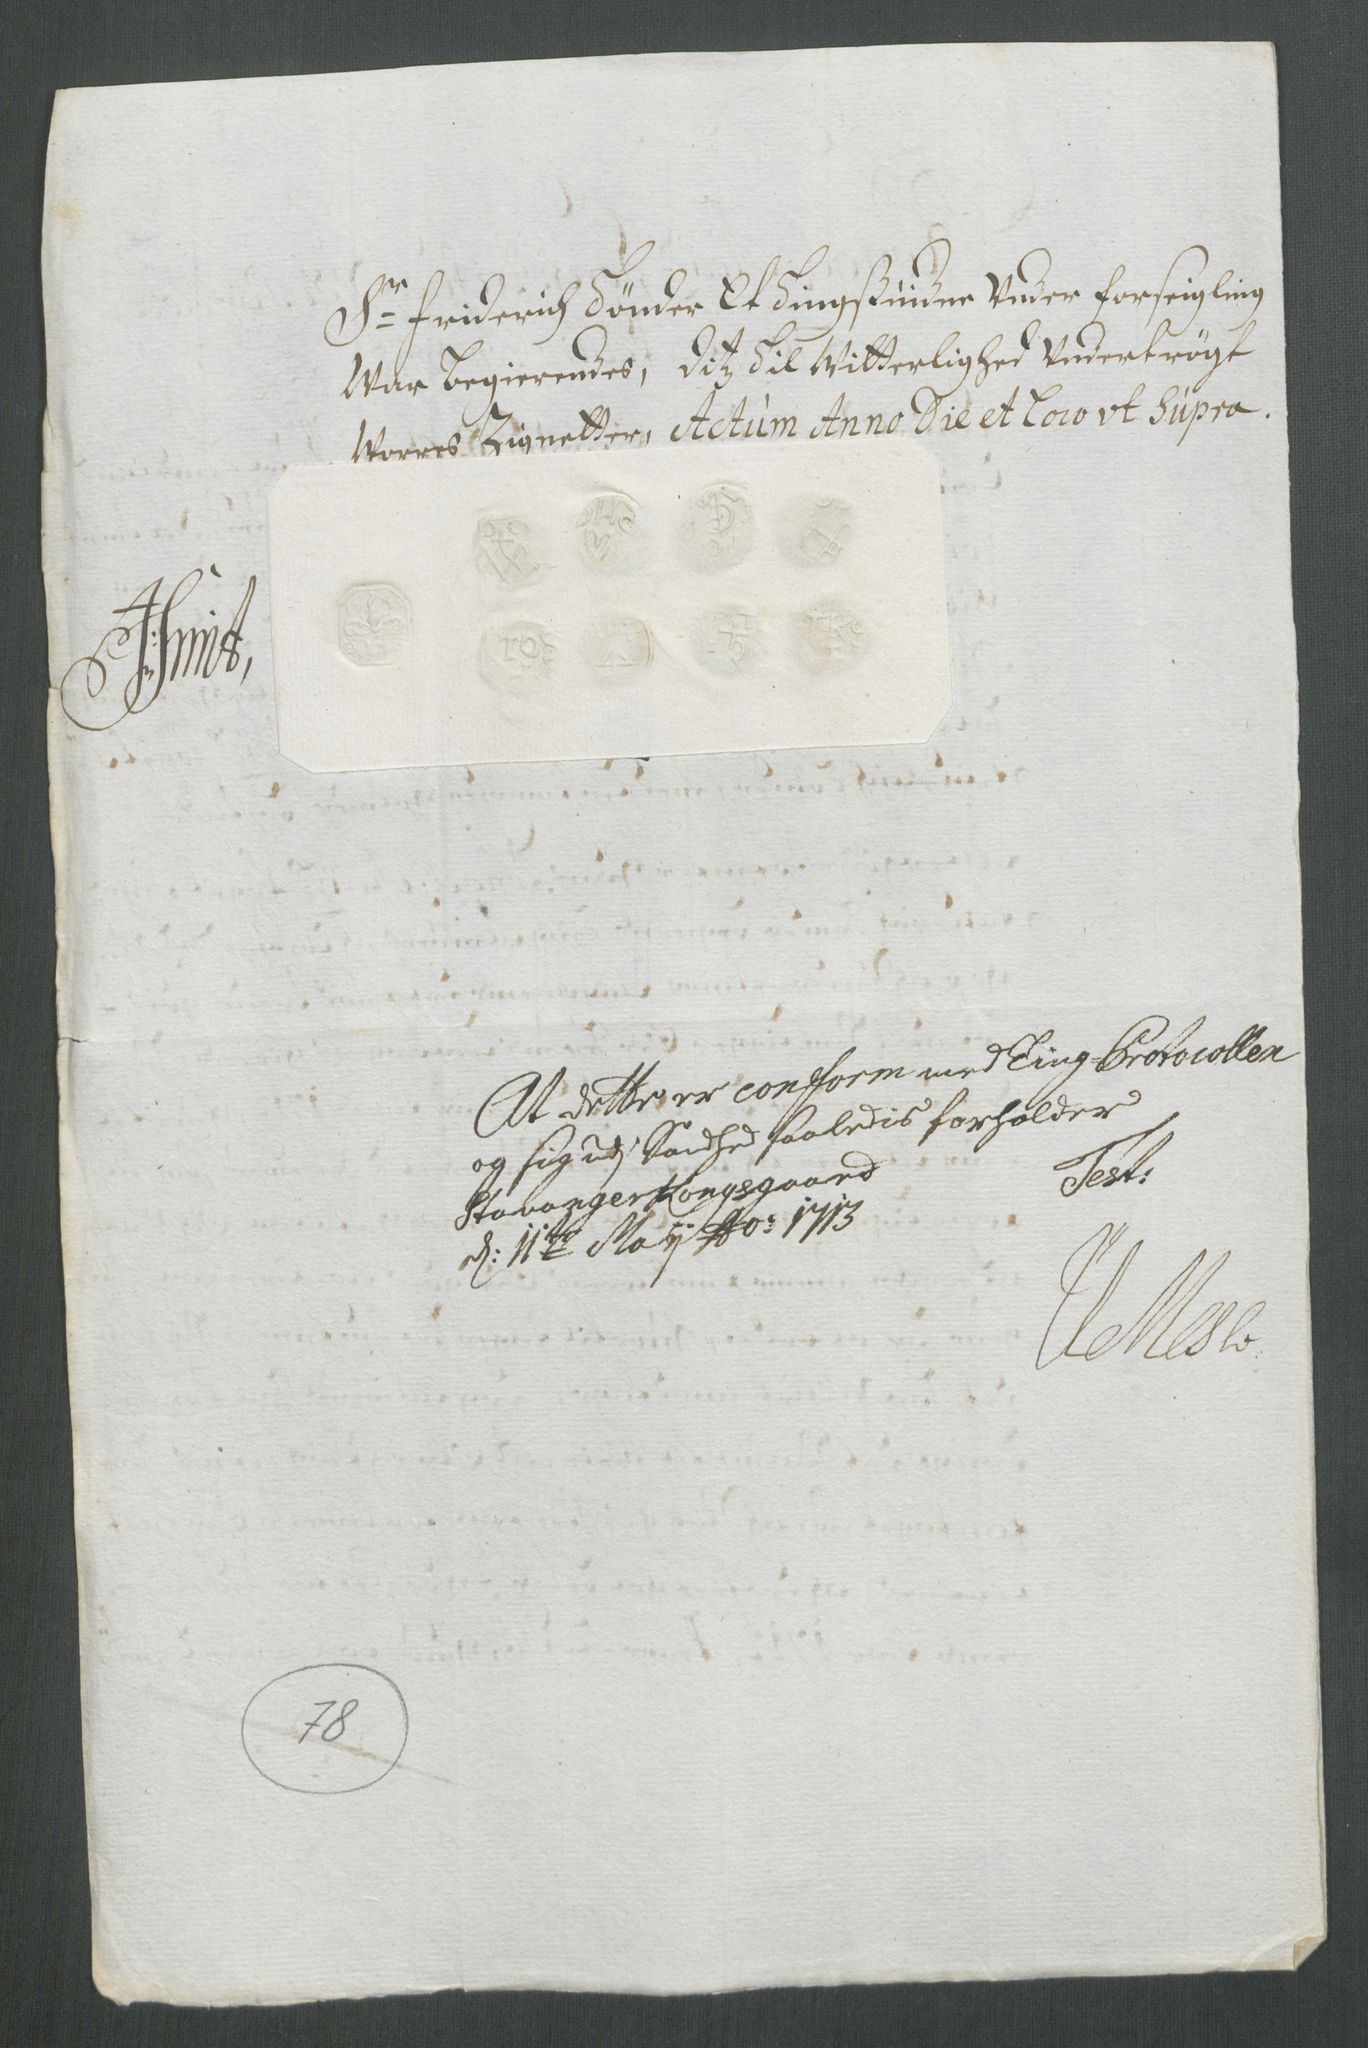 Sr Friderich Tönder Et Tingsvidne Under forseigling
War begierendes, ditz til Witterlighed Undertrögt
Worres Zignetter, Actúm Anno Die et Loco ut súpra.
At dette er conform med Ting Protocollen
og sig udj Sandhed saaledis forholder
Stavanger Kongsgaard Test:
d: 11te Maÿ Ao: 1713
78